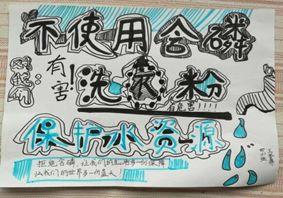 不使用含磷
有害!
洗衣粉
有害!!!!
保护水资源
拒绝含磷,让我们的
让我们的世界多一份蓝天